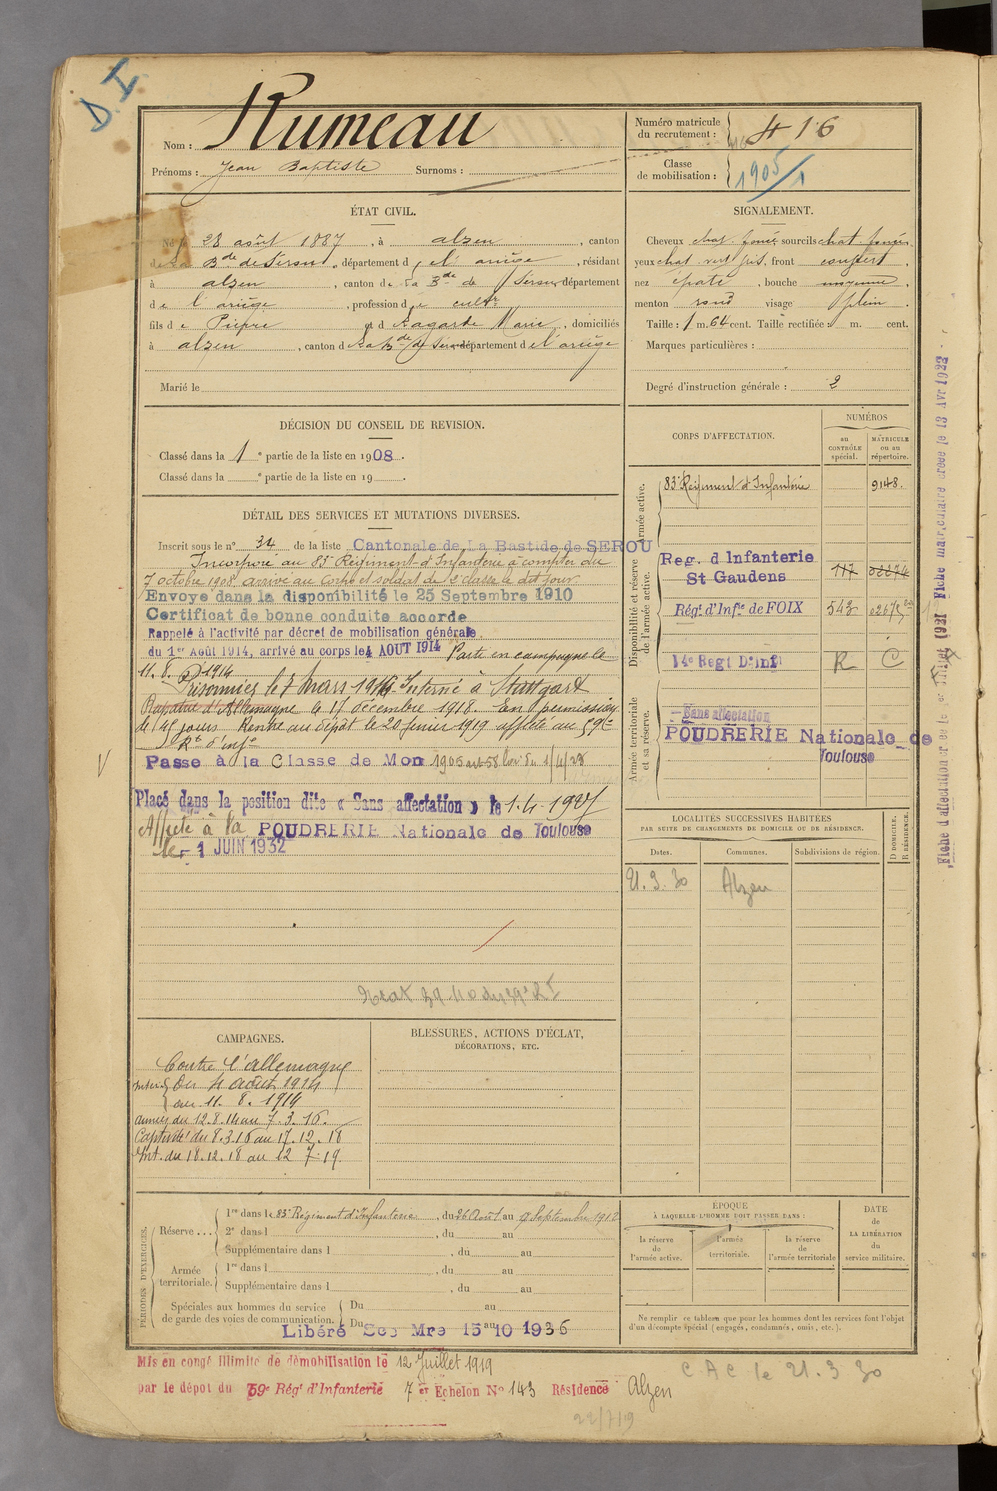 D. I.
Nom : Rumeau
Prénoms : Jean Baptiste Surnoms :
Numéro matricule du recrutement : 416
Classe de mobilisation : 1905/1
ÉTAT CIVIL.
Né le 28 août 1887, à alzen, canton
de La Bde de Sérou, département de l'ariège, résidant
à alzen, canton de La Bde de Sérou département
de l'ariège, profession de cultr
fils de Pierre et de Lagarde Marie, domiciliés
à alzen, canton de La Bde de Sérou département de l'ariège
Marié le
SIGNALEMENT.
Cheveux chat. foncé sourcils chat. foncés
yeux chat. vert gris, front couvert,
nez épaté, bouche moyenne,
menton rond visage plein.
Taille : 1 m. 64 cent. Taille rectifiée : m. cent.
Marques particulières :
Degré d'instruction générale : 2
DÉCISION DU CONSEIL DE REVISION.
Classé dans la 1e partie de la liste en 1908.
Classé dans la e partie de la liste en 19 .
DÉTAIL DES SERVICES ET MUTATIONS DIVERSES.
Inscrit sous le n° 34 de la liste Cantonale de La Bastide de SEROU
Incorporé au 83e Régiment d'Infanterie à compter du
7 octobre 1908 arrivé au Corps et soldat de 2e classe le dit jour
Envoyé dans la disponibilité le 25 Septembre 1910
Certificat de bonne conduite accordé
Rappelé à l'activité par décret de mobilisation générale
du 1er Août 1914, arrivé au corps le 4 AOUT 1914 Parti en campagne le
11. 8. 1914
Prisonnier le 7 mars 1916 Interné à Stuttgart
Rapatrié d'Allemagne le 17 décembre 1918. En permission
de 45 jours Rentré au dépôt le 20 février 1919 affecté au 59e
Rt d'Infie
Passé à la Classe de Mon 1905 art 58 loi du 1/4/23
Placé dans la position dite « Sans affectation » le 1.4.1927
Affecté à la POUDRERIE Nationale de Toulouse
le 1 JUIN 1932
CORPS D'AFFECTATION.
NUMÉROS
au CONTRÔLE spécial.
MATRICULE ou au répertoire.
Armée active.
83e Régiment d'Infanterie 9148.
Disponibilité et réserve de l'armée active.
Reg. d Infanterie
St Gaudens 117
Régt d'Infie de FOIX 543
14e Regt D'Inf R C
Armée territoriale et sa réserve.
Sans affectation
POUDRERIE Nationale de
Toulouse
LOCALITÉS SUCCESSIVES HABITÉES
PAR SUITE DE CHANGEMENTS DE DOMICILE OU DE RÉSIDENCE.
Dates. Communes. Subdivisions de région. D DOMICILE. R RÉSIDENCE.
21. 3. 30 Alzen
CAMPAGNES.
Contre l'allemagne
Intér. Du 4 août 1914
au 11. 8. 1914
armées du 12.8.14 au 7.3.16.
Captivité du 8.3.16 au 17.12.18
Int. du 18.12.18 au 12 7.19.
BLESSURES, ACTIONS D'ÉCLAT,
DÉCORATIONS, ETC.
PÉRIODES D'EXERCICES.
Réserve . . .
1re dans le 83e Régiment d'Infanterie, du 26 Août au 9 Septembre 1912
2e dans l , du au
Supplémentaire dans l , du au
Armée territoriale.
1re dans l , du au
Supplémentaire dans l , du au
Spéciales aux hommes du service de garde des voies de communication.
Du au
Du au
Libéré Sce Mre 15 10 1936
ÉPOQUE
À LAQUELLE L'HOMME DOIT PASSER DANS :
la réserve de l'armée active.
l'armée territoriale.
la réserve de l'armée territoriale
DATE de LA LIBÉRATION du service militaire.
Ne remplir ce tableau que pour les hommes dont les services font l'objet
d'un décompte spécial (engagés, condamnés, omis, etc.).
Mis en congé illimité de démobilisation le 12 Juillet 1919
par le dépôt du 59e Régt d'Infanterie 7e Echelon N° 143 Résidence Alzen
C A C le 21. 3 30
22/7/19